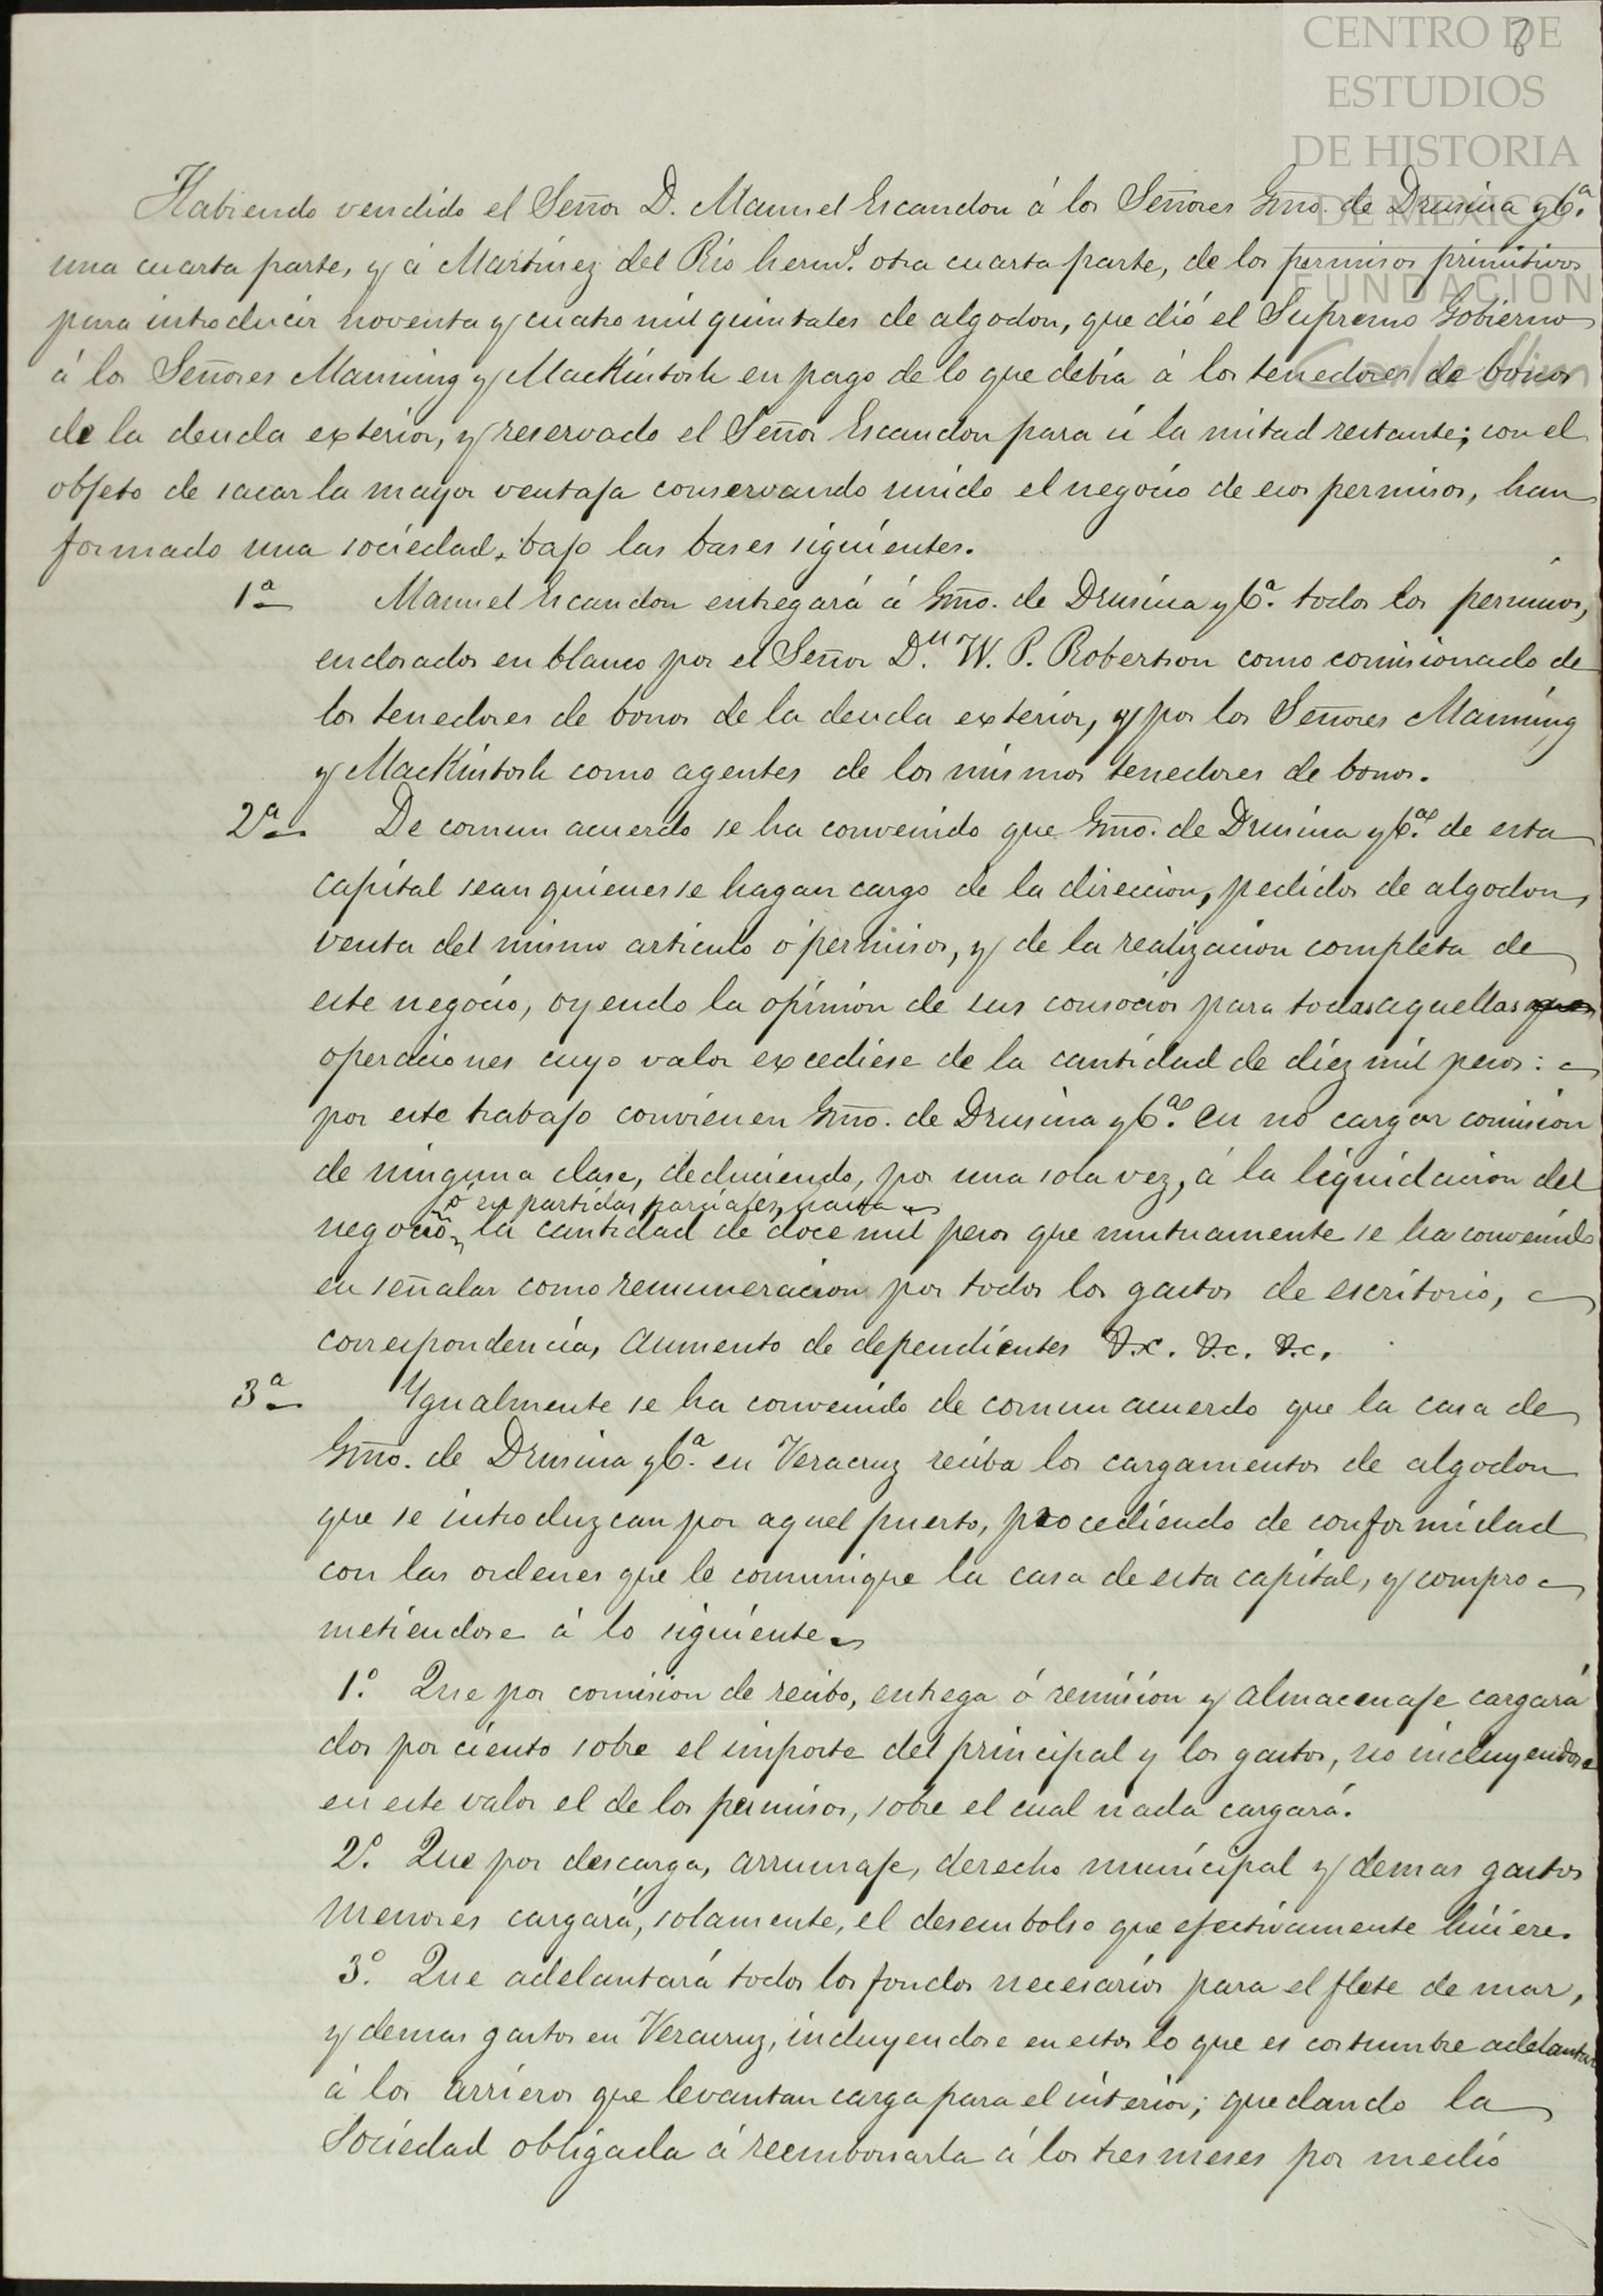 CENTRO DE
ESTUDIOS
DE HISTORIA
DE MÉXICO
FUNDACIÓN
Carlos Slim
8
Habiendo vendido el Señor D. Manuel Escandon á los Señores Gmo. de Drusina y Cª.
una cuarta parte, y á Martinez del Rio hermˢ. otra cuarta parte, de los permisos primitivos
para introducir noventa y cuatro mil quintales de algodon, que dió el Supremo Gobierno
á los Señores Manning y MacKintosh en pago de lo que debia á los tenedores de bonos
de la deuda exterior, y reservado el Señor Escandon para si la mitad restante; con el
objeto de sacar la mayor ventaja conservando unido el negocio de esos permisos, han
formado una sociedad, bajo las bases siguientes.
1ª Manuel Escandon entregará á Gmo. de Drusina y Cª. todos los permisos,
endosados en blanco por el Señor Dⁿ. W. P. Robertson como comisionado de
los tenedores de bonos de la deuda exterior, y por los Señores Manning
y MacKintosh como agentes de los mismos tenedores de bonos.
2ª De comun acuerdo se ha convenido que Gmo. de Drusina y Cª. de esta
capital sean quienes se hagan cargo de la direccion, pedidos de algodon,
venta del mismo articulo ó permisos, y de la realizacion completa de
este negocio, oyendo la opinion de sus consocios para todas aquellas
operaciones cuyo valor excediese de la cantidad de diez mil pesos:
por este trabajo convienen Gmo. de Drusina y Cª. en no cargar comision
de ninguna clase, deduciendo, por una sola vez, á la liquidacion del
ó en partidas parciales, hasta
negocio, la cantidad de doce mil pesos que mutuamente se ha convenido
en señalar como remuneracion por todos los gastos de escritorio,
correspondencia, aumento de dependientes &c. &c. &c.
3ª Ygualmente se ha convenido de comun acuerdo que la casa de
Gmo. de Drusina y Cª. en Veracruz reciba los cargamentos de algodon
que se introduzcan por aquel puerto, procediendo de conformidad
con las ordenes que le comunique la casa de esta capital, y compro
metiendose á lo siguiente.
1º. Que por comision de recibo, entrega ó remision y almacenaje cargará
dos por ciento sobre el importe del principal y los gastos, no incluyendose
en este valor el de los permisos, sobre el cual nada cargará.
2º. Que por descarga, arrumaje, derecho municipal y demas gastos
menores cargará, solamente, el desembolso que efectivamente hiciere.
3º. Que adelantará todos los fondos necesarios para el flete de mar,
y demas gastos en Veracruz, incluyendose en estos lo que es costumbre adelantar
á los arrieros que levantan carga para el interior; quedando la
Sociedad obligada á reembonsarla á los tres meses por medio